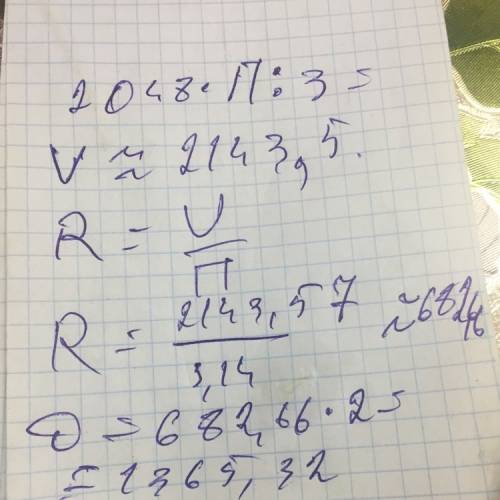 2048·П:3=
V ≈ 2143,5.
R = V/П
R = 2143,57/3,14 ≈682,66
D = 682,66·2=
=1365,32